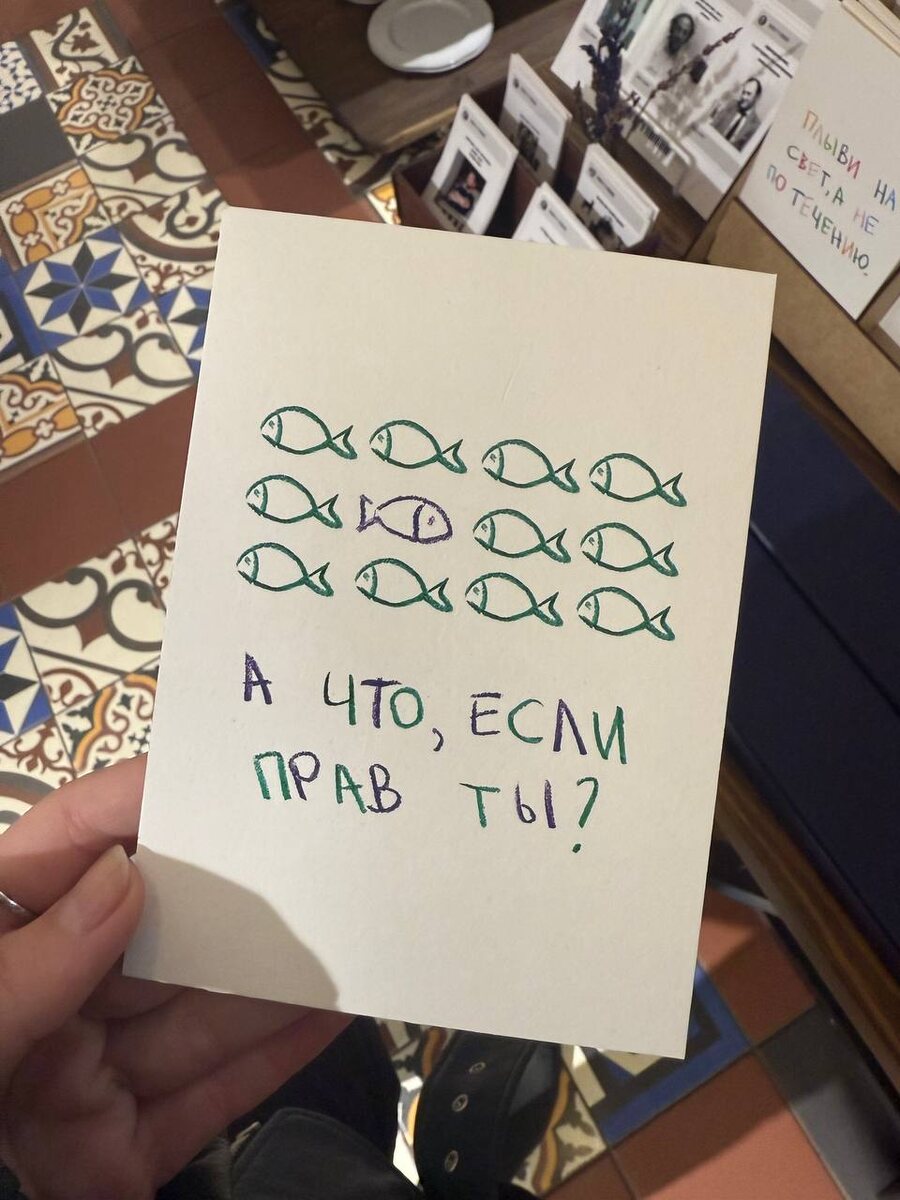 А ЧТО, ЕСЛИ
ПРАВ ТЫ?
ПЛЫВИ НА
СВЕТ, А НЕ
ПО ТЕЧЕНИЮ.